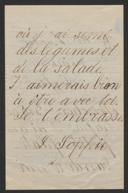 où j'ai semé
des légumes et
de la salade
J'aimerais bien
à être avec toi.
Je t'embrasse
Sophie